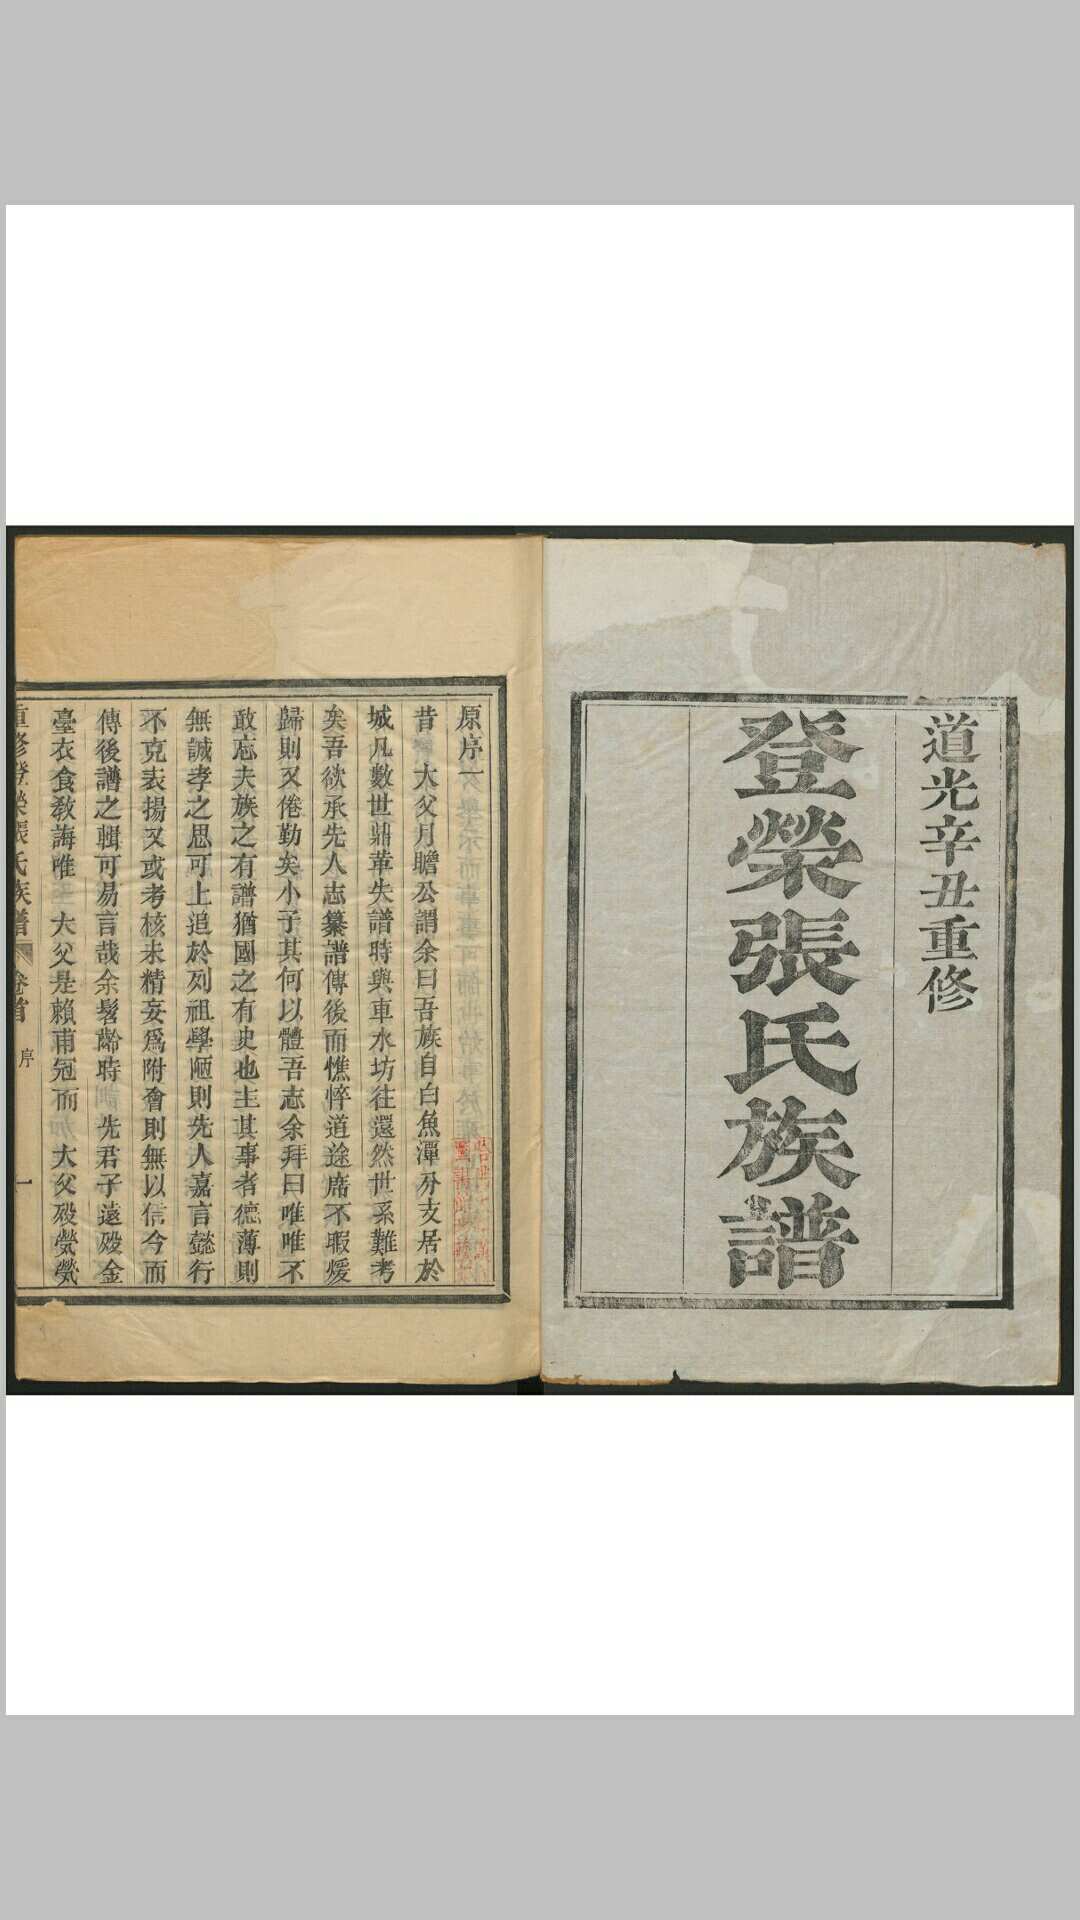 道光辛丑重修
登榮張氏族譜
原序一
昔 大父月瞻公謂余曰吾族自白魚潭分支居於
城凡數世鼎革失譜時與車水坊往還然世系難考
矣吾欲承先人志纂譜傳後而憔悴道途席不暇煖
歸則又倦勤矣小子其何以體吾志余拜曰唯唯不
敢忘夫族之有譜猶國之有史也主其事者德薄則
無誠孝之思可上追於列祖學陋則先人嘉言懿行
不克表揚又或考核未精妄爲附會則無以信今而
傳後譜之輯可易言哉余髫齡時 先君子遠歿金
臺衣食敎誨唯 大父是賴甫冠而 大父歿煢煢
重修登榮張氏族譜 卷首 序 一